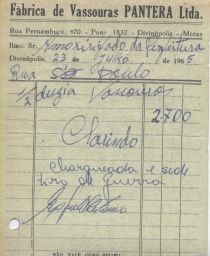 Fábrica de Vassouras PANTERA Ltda.
Rua Pernambuco, 670 - Fone 1832 - Divinópolis - Minas
Ilmo. Sr. Amoxirifado da Prefeitura
Divinópolis, 23 de Julho de 1965
Rua São Paulo
1/2 duzia Vassouras
2700
Clarindo
Charqueada e sede
tiro de Guerra
NÃO VALE COMO RECIBO